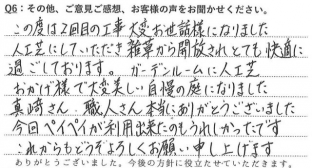 Q6：その他、ご意見ご感想、お客様の声をお聞かせください。
この度は2回目の工事大変お世話様になりました
人工芝にしていただき雑草から開放されとても快適に
過ごしております。ガーデンルームに人工芝
おかげ様で大変美しい自慢の庭になりました
真崎さん、職人さん本当にありがとうございました
今回ペイペイが利用出来たのもうれしかったです
これからもどうぞよろしくお願い申し上げます
ありがとうございました。今後の方針に役立たせていただきます。